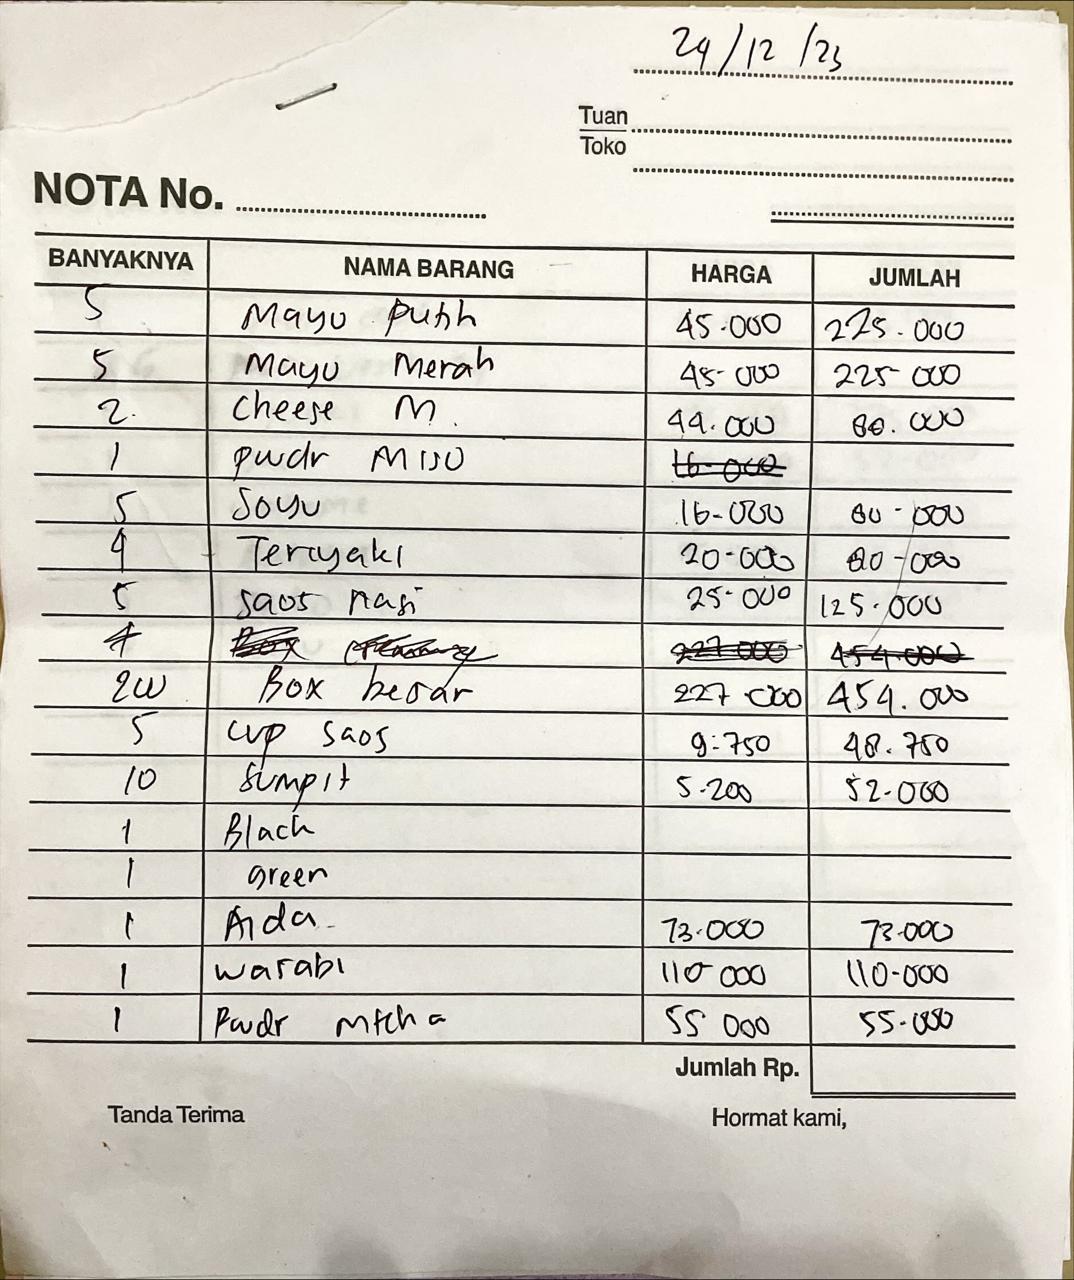 24/12/23
Tuan
Toko
NOTA No.
BANYAKNYA NAMA BARANG HARGA JUMLAH
5 Mayo Putih 45.000 225.000
5 Mayo Merah 45.000 225 000
2. Cheese M. 44.000 88.000
1 pwdr Miso 16.000
5 Soyu 16.000 80.000
4 Teriyaki 20.000 80.000
5 saos nasi 25.000 125.000
4 Box 227.000 454.000
200 Box besar 227.000 454.000
5 cup saos 9.750 48.750
10 sumpit 5.200 52.000
1 Black
1 green
1 Aida 73.000 73.000
1 warabi 110 000 110.000
1 Pwdr mtcha 55 000 55.000
Jumlah Rp.
Tanda Terima Hormat kami,